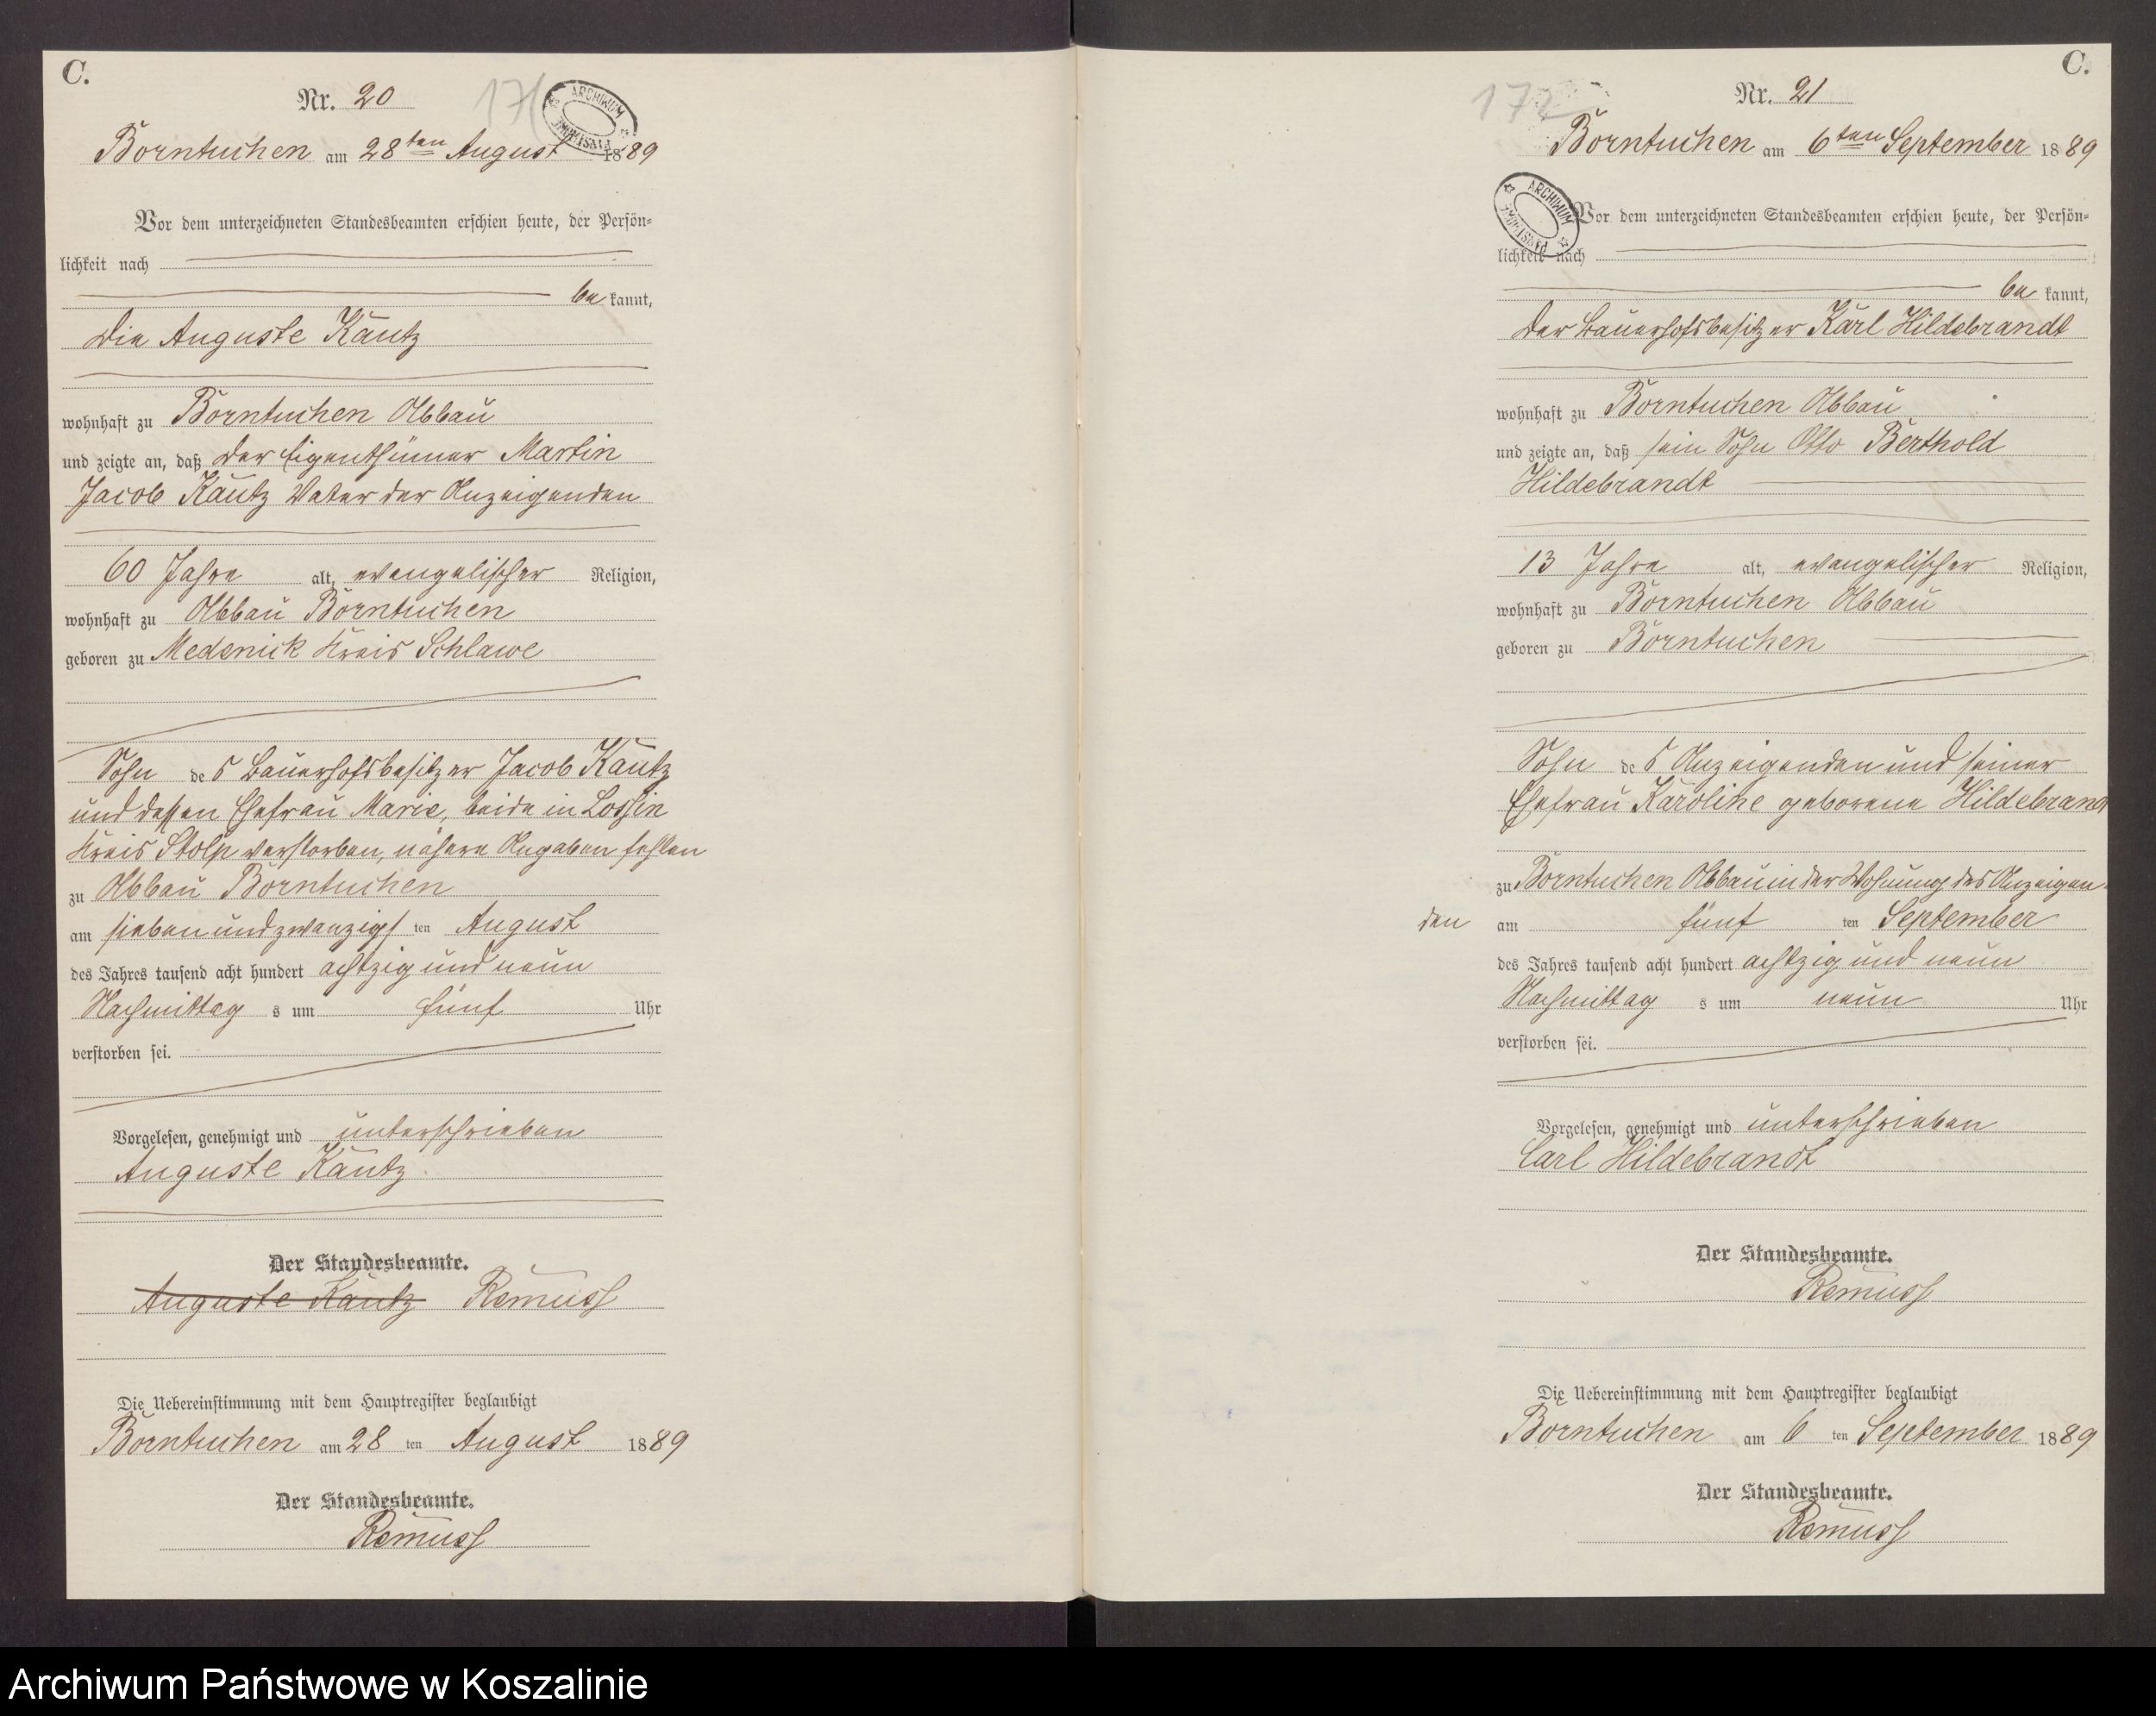 C.
Nr. 20
171
ARCHIWUM PAŃSTWOWE
Borntuchen am 28ten August 1889
Vor dem unterzeichneten Standesbeamten erschien heute, der Persön-
lichkeit nach
be kannt,
die Auguste Käutz
wohnhaft zu Borntuchen Abbau
und zeigte an, daß der Eigenthümer Martin
Jacob Käutz Vater der Anzeigenden
60 Jahre alt, evangelischer Religion,
wohnhaft zu Abbau Borntuchen
geboren zu Medenick Kreis Schlawe
Sohn des Bauerhofsbesitzer Jacob Kautz
und dessen Ehefrau Marie, beide in Lossin
Kreis Stolp verstorben, nähere Angaben fehlen
zu Abbau Borntuchen
am sieben und zwanzigs ten August
des Jahres tausend acht hundert achtzig und neun
Nachmittag s um fünf Uhr
verstorben sei.
Vorgelesen, genehmigt und unterschrieben
Auguste Käutz
Der Standesbeamte.
Auguste Kautz Remuss
Die Uebereinstimmung mit dem Hauptregister beglaubigt
Borntuchen am 28 ten August 1889
Der Standesbeamte.
Remuss
C.
Nr. 21
172
Borntuchen am 6ten September 1889
ARCHIWUM PAŃSTWOWE
Vor dem unterzeichneten Standesbeamten erschien heute, der Persön-
lichkeit nach
be kannt,
der Bauerhofsbesitzer Karl Hildebrandt
wohnhaft zu Borntuchen Abbau
und zeigte an, daß sein Sohn Otto Berthold
Hildebrandt
13 Jahre alt, evangelischer Religion,
wohnhaft zu Borntuchen Abbau
geboren zu Borntuchen
Sohn des Anzeigenden und seiner
Ehefrau Karoline geborene Hildebrandt
zu Borntuchen Abbau in der Wohnung des Anzeigen-
den am fünf ten September
des Jahres tausend acht hundert achtzig und neun
Nachmittag s um neun Uhr
verstorben sei.
Vorgelesen, genehmigt und unterschrieben
Carl Hildebrandt
Der Standesbeamte.
Remuss
Die Uebereinstimmung mit dem Hauptregister beglaubigt
Borntuchen am 6 ten September 1889
Der Standesbeamte.
Remuss
Archiwum Państwowe w Koszalinie